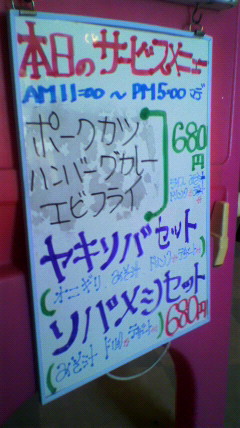 本日のサービスメニュー
AM11:00 〜 PM5:00 まで
ポークカツ
ハンバーグカレー
エビフライ
680円
ヤキソバセット
(オニギリ みそ汁 ドリンク
ソバメシセット
(みそ汁 ドリンク
680円